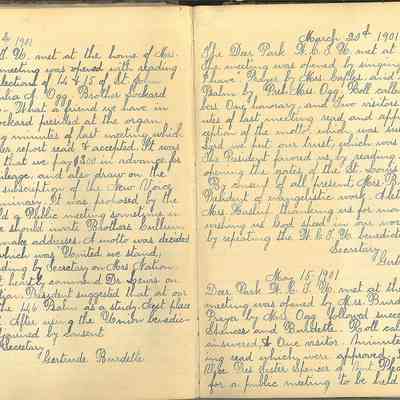 1901
T. U. met at the home of Mrs.
meeting was opened with reading
selections of 14 & 15 of St. John
Ogg Brother Lockard
What a friend we have in
Lockard presided at the organ
minutes of last meeting which
report read & accepted. It was
that we pay $3.00 in advance for
and also draw on the
subscription of the New Voice
It was proposed by the
hold a Public meeting sometime in
we should invite Brothers Cullison
make addresses. A motto was decided
which was United we stand,
reading by Secretary on Mrs. Nation
heartily commend Dr.
President suggested that at our
the 146 Psalm as a study. Next place
After using the Union benedic-
adjourned by consent
Secretary
Gertrude Burdette
March 22d 1901
The Deer Park W. C. T. U. met at
the meeting was opened by singing
I have. Prayer by Mrs. and
Psalm by Pres. Mrs. Ogg. Roll called
bers One honorary, and Two visitors
utes of last meeting read, and app
ception of the motto which was
Lord we put our trust, which was
The President favored us by reading
opening the gates of the St. Louis
By consent of all present Mrs. B
President of evangelistic work. A let
Mrs. Haslup thanking us for mon
wishing us God speed in our wor
by repeating the W. C. T. U. benedict
Secretary
Gert
May 15 1901
Deer Park W. C. T. U. met at the
meeting was opened by Mrs. Burd
Prayer by Mrs. Ogg followed succes
Spencer and Burdette. Roll cal
answered & One visitor. Minute
ing read which were approved.
Vice Pres. Sister Spencer of Mont
for a public meeting to be held